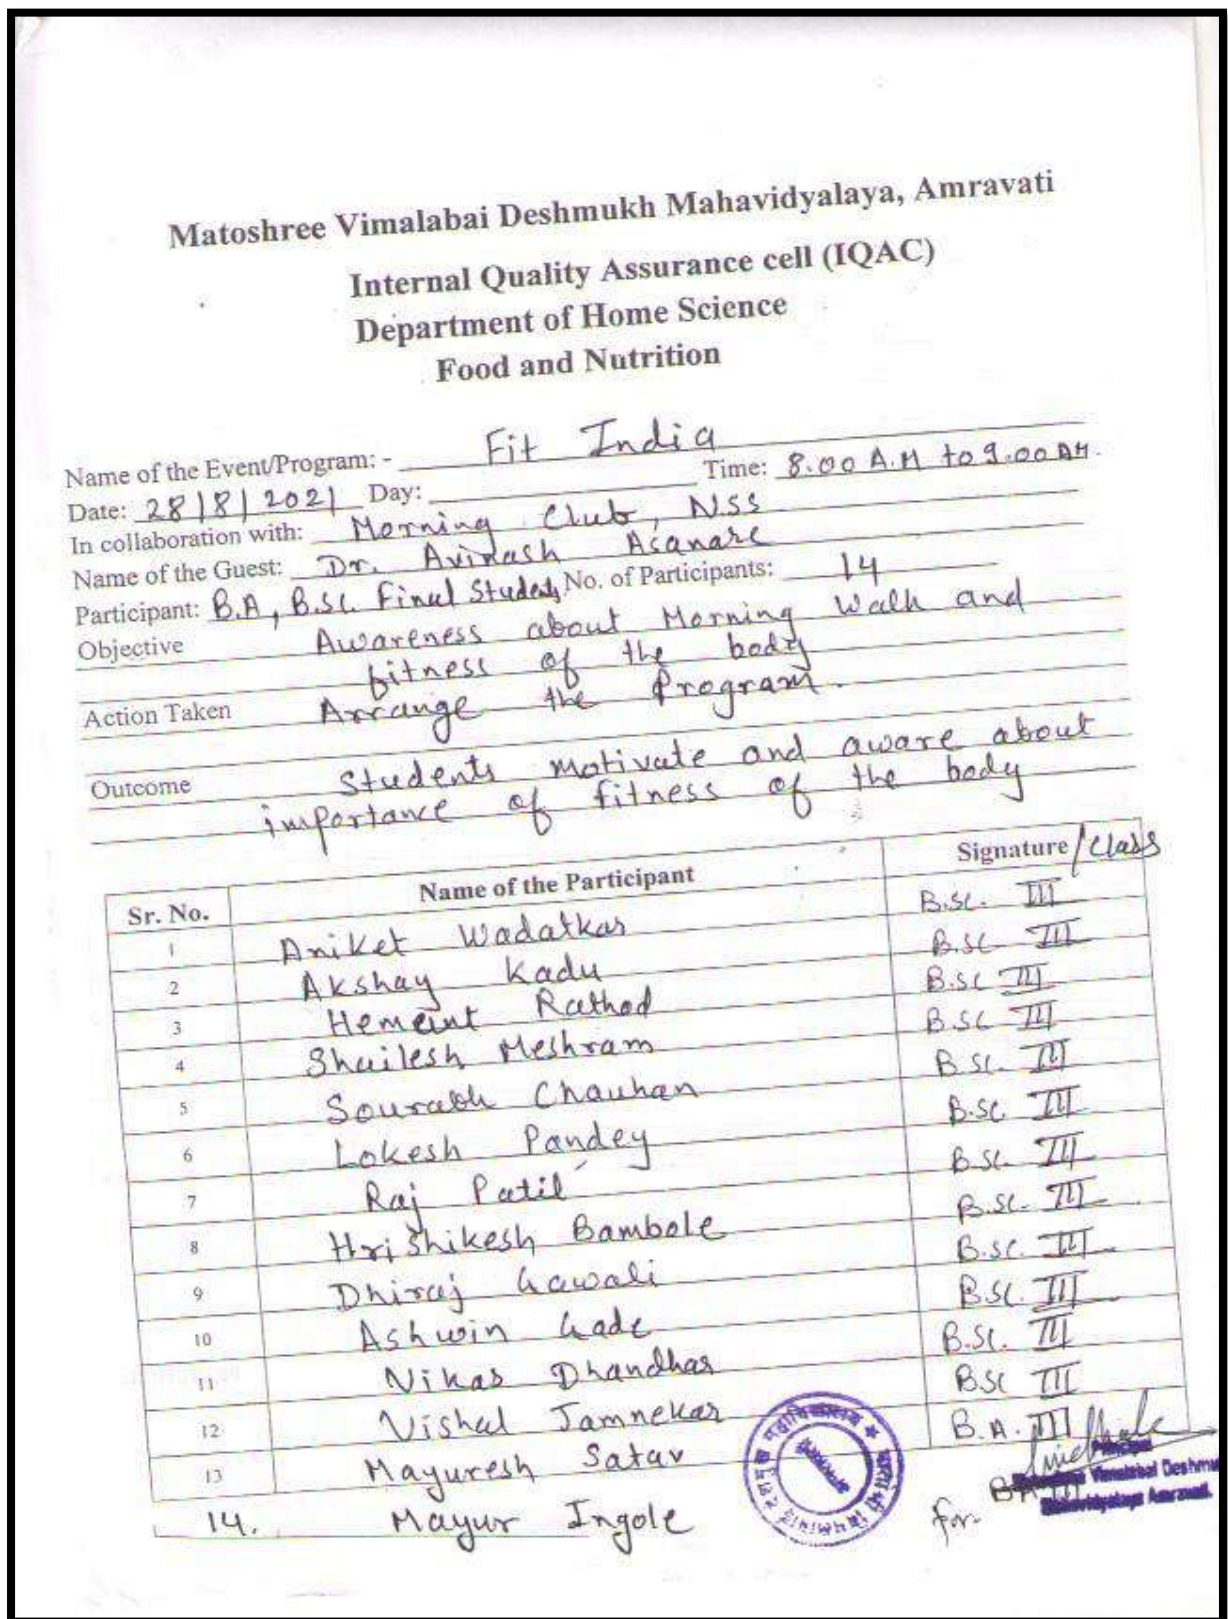 Matoshree Vimalabai Deshmukh Mahavidyalaya, Amravati
Internal Quality Assurance cell (IQAC)
Department of Home Science
Food and Nutrition
Name of the Event/Program: - Fit India
Date: 28/8/2021 Day: Time: 8.00 A.M to 9.00 AM.
In collaboration with: Morning Club, NSS
Name of the Guest: Dr. Avinash Asanare
Participant: B.A, B.Sc. Final Students No. of Participants: 14
Objective Awareness about Morning Walk and
fitness of the body
Action Taken Arrange the Program.
Outcome Students motivate and aware about
importance of fitness of the body
Sr. No. Name of the Participant Signature/Class
1 Aniket Wadatkar B.Sc. III
2 Akshay Kadu B.Sc III
3 Hemant Rathod B.Sc III
4 Shailesh Meshram B.Sc III
5 Sourabh Chauhan B.Sc. III
6 Lokesh Pandey B.Sc. III
7 Raj Patil B.Sc. III
8 Hrishikesh Bambole B.Sc. III
9 Dhiraj Gawali B.Sc. III
10 Ashwin Gade B.Sc. III
11 Vikas Dhandhar B.Sc. III
12 Vishal Jamnekar B.Sc III
13 Mayuresh Satav B.A. III
14. Mayur Ingole B.A III
for- Principal
Vimalabai Deshmu
Mahavidyalaya Amravati.